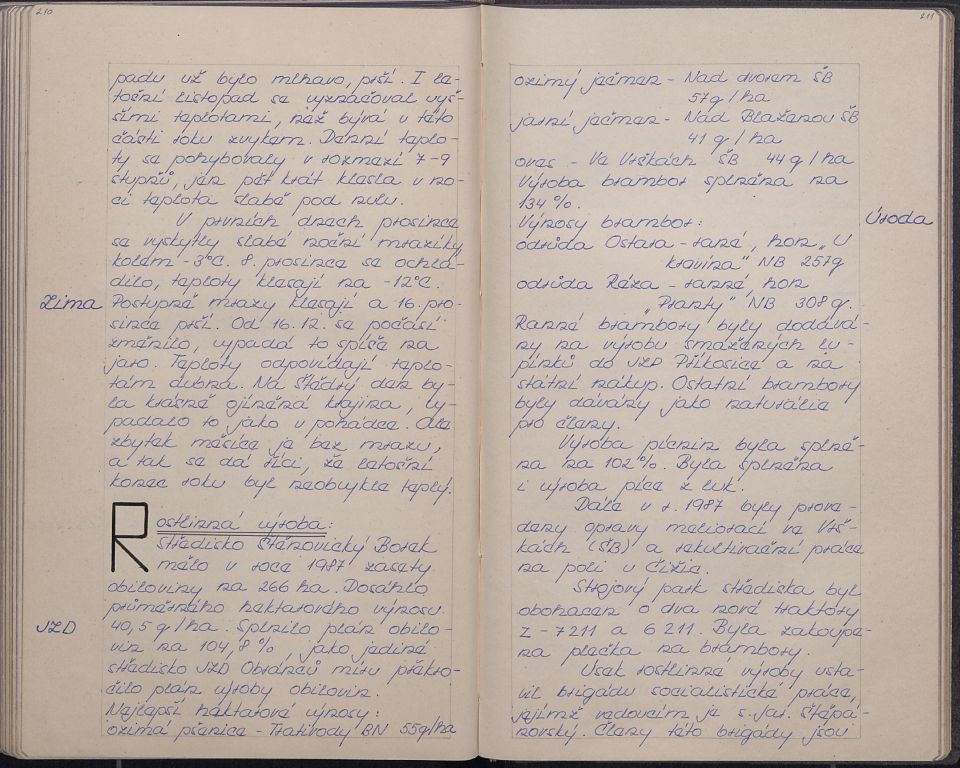 210
padu už bylo mlhavo, prší. I le-
tošní listopad se vyznačoval vyš-
šími teplotami, než bývá v této
části roku zvykem. Denní teplo-
ty se pohybovaly v rozmezí 7-9
stupňů, jen pět krát klesla v no-
ci teplota slabě pod nulu.
V prvních dnech prosince
se vyskytly slabé noční mrazíky
kolem -3°C. 8. prosince se ochla-
dilo, teploty klesají na -12°C.
Zima
Postupně mrazy klesají a 16. pro-
since prší. Od 16.12. se počasí
změnilo, vypadá to spíše na
jaro. Teploty odpovídají teplo-
tám dubna. Na Štědrý den by-
la krásně ojíněná krajina, vy-
padalo to jako v pohádce. Ale
zbytek měsíce je bez mrazu,
a tak se dá říci, že letošní
konec roku byl neobvykle teplý.
Rostlinná výroba:
Středisko Štěnovický Borek
mělo v roce 1987 zasety
obiloviny na 266 ha. Dosáhlo
průměrného hektarového výnosu
JZD
40,5 q/ha. Splnilo plán obilo-
vin na 104,8 %, jako jediné
středisko JZD Obránců míru překro-
čilo plán výroby obilovin.
Nejlepší hektarové výnosy:
ozimá pšenice - Tratívody BN 55q/ha
211
ozimý ječmen - Nad dvorem ŠB
57q/ha
jarní ječmen - Nad Blažanou ŠB
41 q/ha
oves - Ve Vrškách ŠB 44 q/ha
Výroba brambor splněna na
134 %.
Úroda
Výnosy brambor:
odrůda Ostara - rané, hon „U
kravína" NB 257q
odrůda Réza - ranné, hon
„Pranty" NB 308 q.
Ranné brambory byly dodává-
ny na výrobu smažených lu-
pínků do JZD Příkosice a na
státní nákup. Ostatní brambory
byly dávány jako naturálie
pro členy.
Výroba pícnin byla splně-
na na 102 %. Byla splněna
i výroba píce z luk.
Dále v r. 1987 byly prove-
deny opravy meliorací ve Vrš-
kách (ŠB) a rekultivační práce
na poli v Čížic.
Strojový park střediska byl
obohacen o dva nové traktory
Z-7211 a 6211. Byla zakoupe-
na plečka na brambory.
Úsek rostlinné výroby usta-
vil brigádu socialistické práce,
jejímž vedoucím je s. Jar. Štěpá-
novský. Členy této brigády jsou